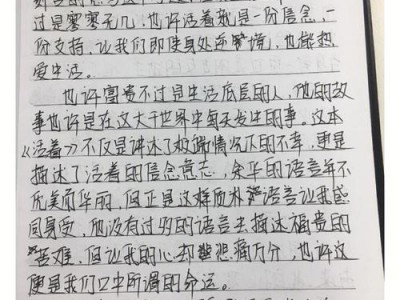 过是寥寥无几，也许活着就是一份信念，一
份支持，让我们即使身处逆境，也能热
爱生活。
也许富贵不过是生活底层的人，他的故
事也许是在这大千世界中每天发生的事。这本
《活着》不仅是讲述了极端情况下的不幸，更是
描述了活着的信念意志，余华的语言并不
优美而华丽，但正是这样质朴语言让我感
同身受，他没有过多的语言去描述福贵的
苦难，但让我的心却悲痛万分，也许这
便是我们口中所谓的命运。